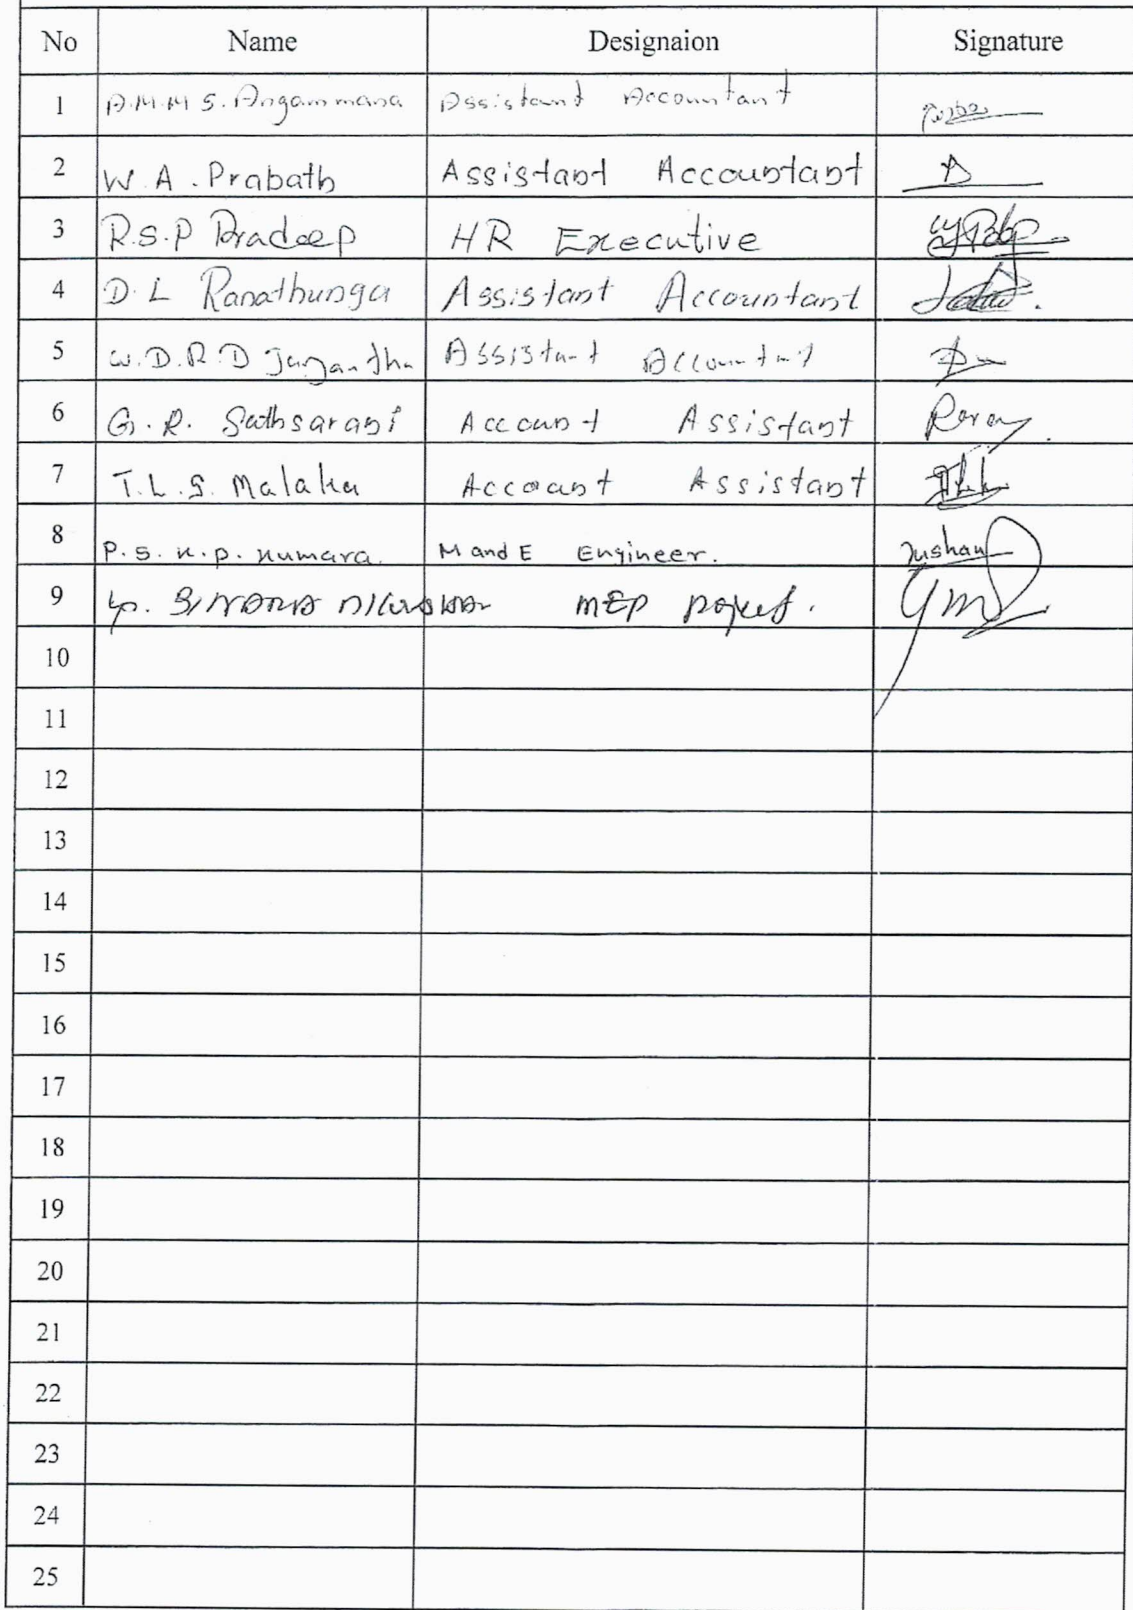 No Name Designaion Signature
1 A.M.M S. Angammana Assistant Accountant
2 W. A. Prabath Assistant Accountant
3 R.S.P Pradeep HR Executive
4 D. L Ranathunga Assistant Accountant
5 W.D.R D Assistant Accountant
6 G. R. Sathsarani Account Assistant
7 T. L. S. Malaka Account Assistant
8 P. S. K. P. Kumara. M and E Engineer.
9 MEP
10
11
12
13
14
15
16
17
18
19
20
21
22
23
24
25